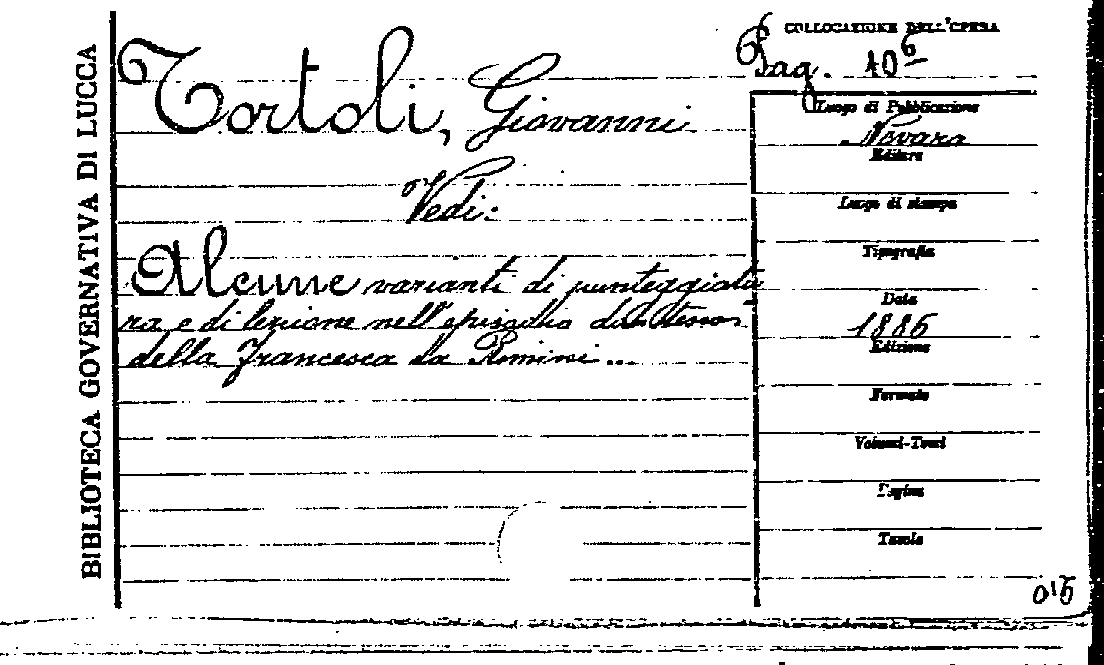 BIBLIOTECA GOVERNATIVA DI LUCCA
Tortoli, Giovanni
Vedi:
Alcune varianti di punteggiatu
ra e di lezione nell'episodio dantesco
della Francesca da Rimini...
COLLOCAZIONE DELL'OPERA
10
Luogo di Pubblicazione
Novara
Editore
Luogo di stampa
Tipografia
Data
1886
Edizione
Formato
Volumi-Tomi
Pagine
Tavole